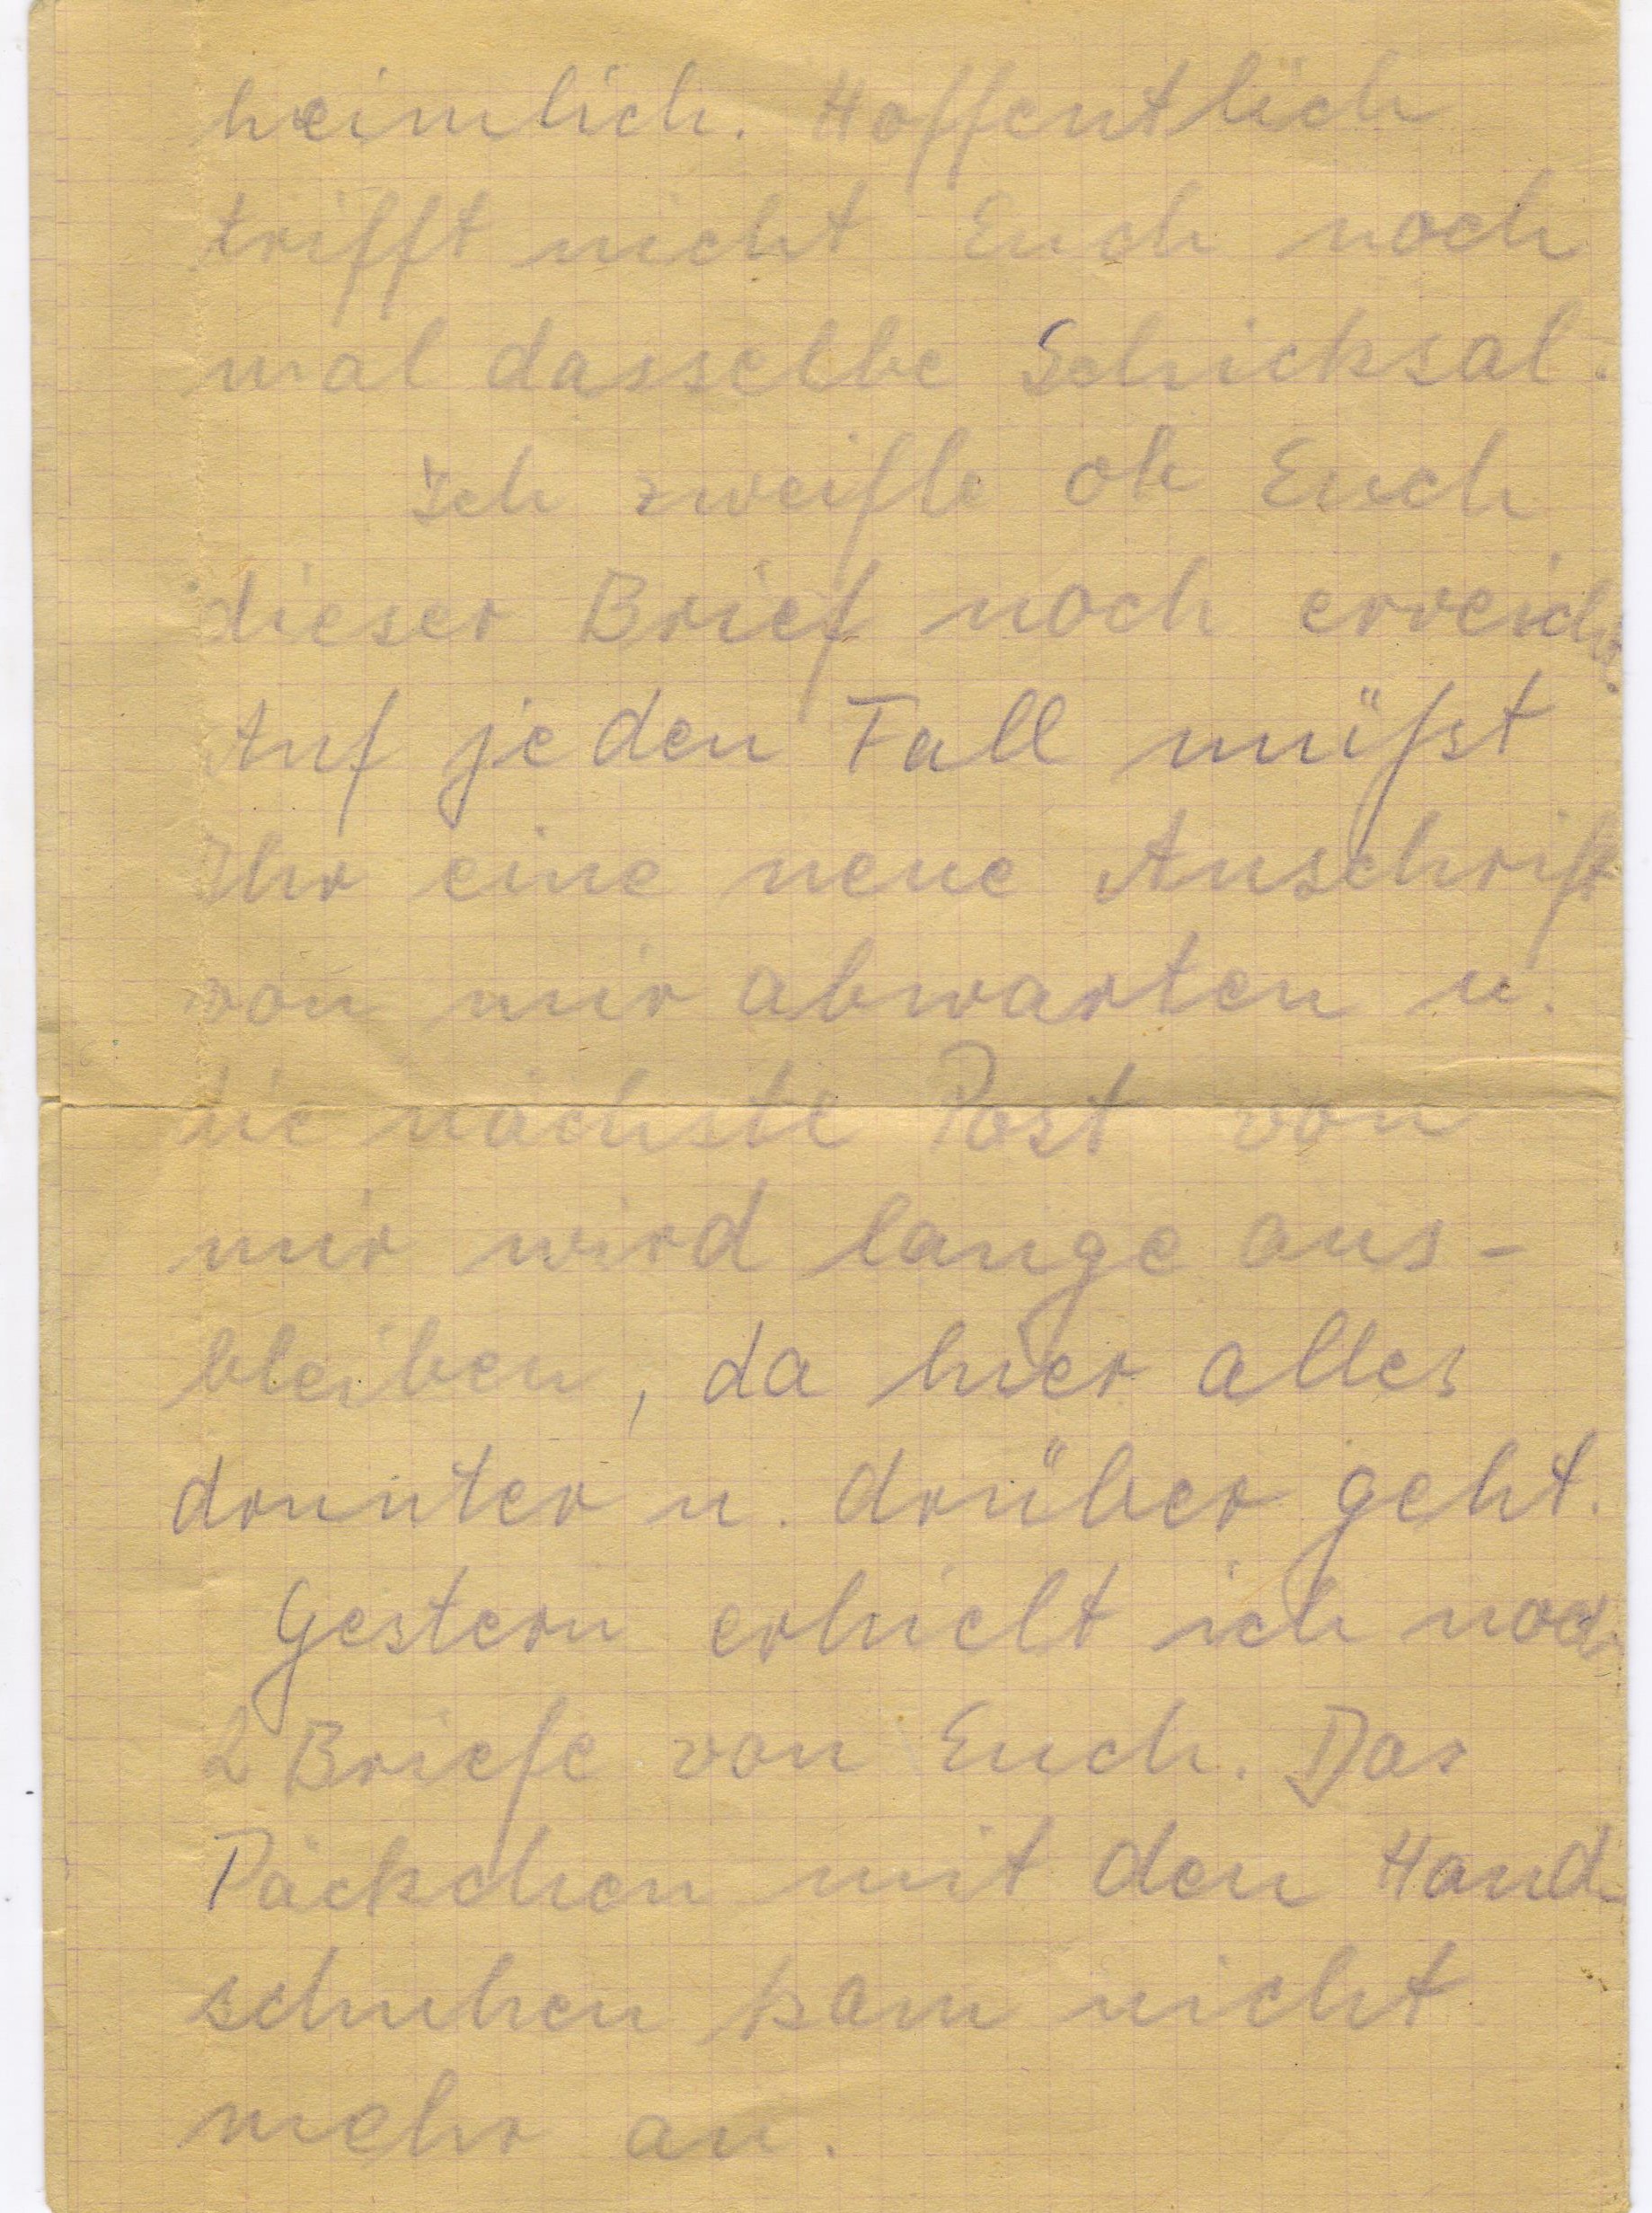 heimlich. Hoffentlich
trifft nicht Euch noch
mal dasselbe Schicksal.
Ich zweifle ob Euch
dieser Brief noch erreicht.
Auf jeden Fall müßt
Ihr eine neue Anschrift
von mir abwarten u.
die nächste Post von
mir wird lange aus-
bleiben, da hier alles
drunter u. drüber geht.
Gestern erhielt ich noch
2 Briefe von Euch. Das
Päckchen mit den Hand-
schuhen kam nicht
mehr an.